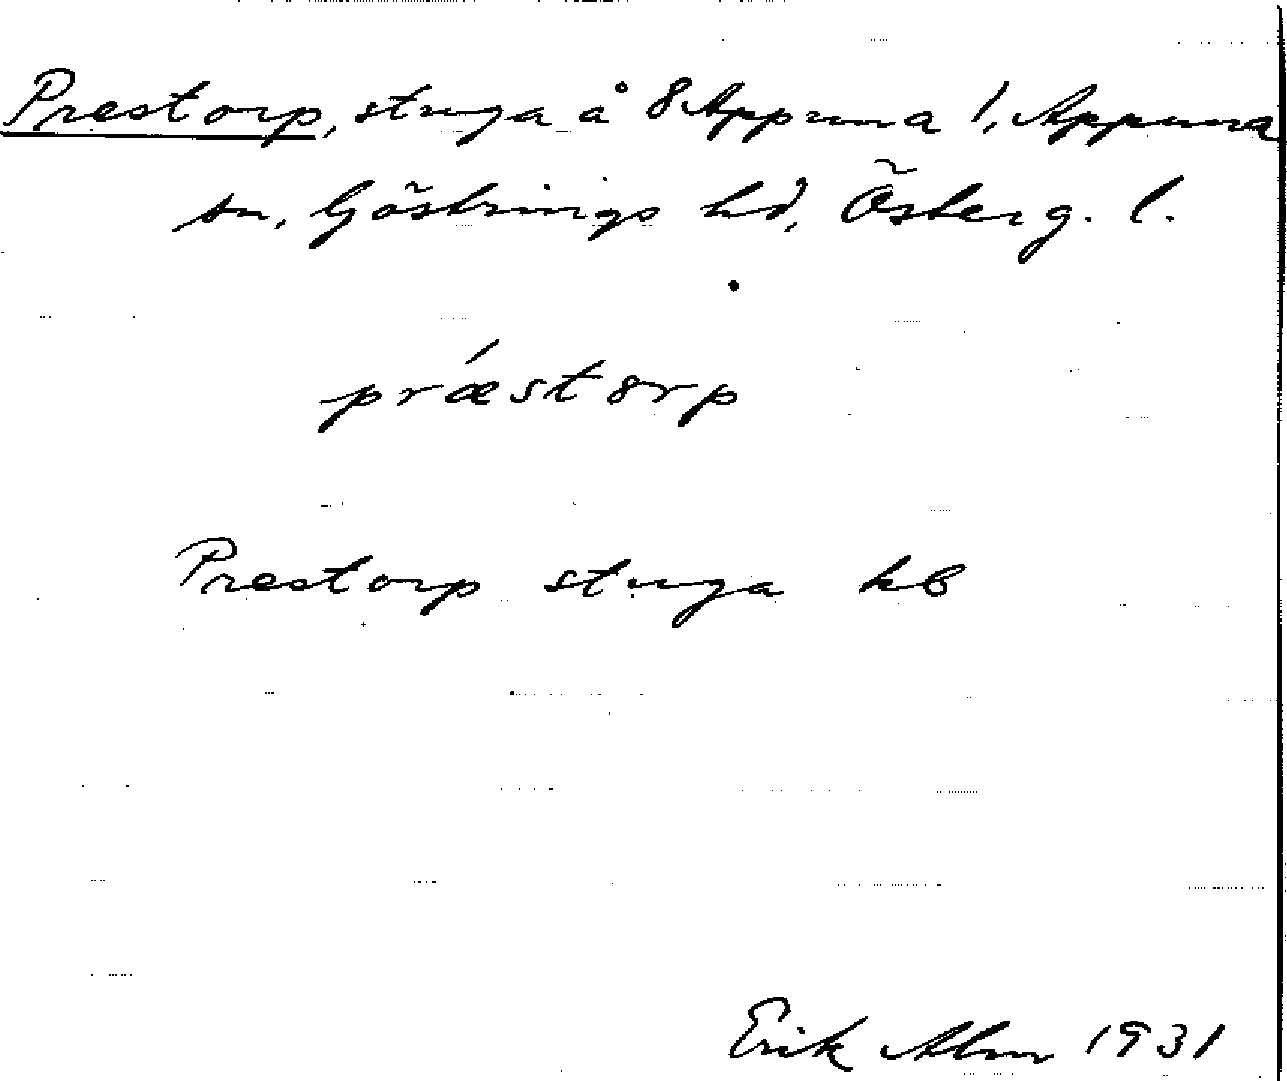 Prestorp, stuga å 8 Appuna 1, Appuna
sn, Göstrings hd, Österg. l.
prǽstorp
Prestorp stuga kb
Erik Alm 1931